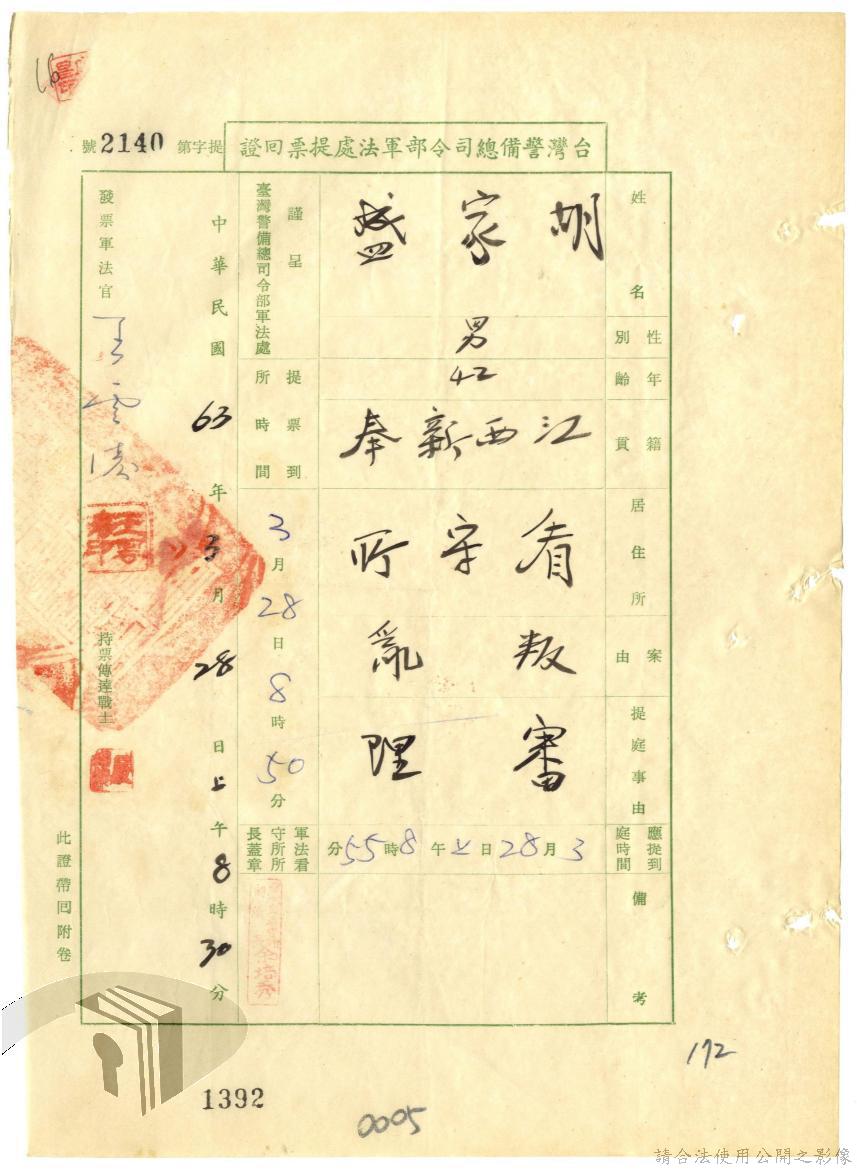 16
台灣警備總司令部軍法處提票回證
提字第2140號
姓名 胡家盛
性別 男
年齡 42
籍貫 江西新奉
居住所 看守所
案由 叛亂
提庭事由 審理
應提到庭時間 3月28日上午8時55分
備考
謹呈
臺灣警備總司令部軍法處
提票到所時間 3月28日8時50分
軍法看守所所長蓋章
中華民國63年3月28日上午8時30分
發票軍法官 王雲濤
持票傳達戰士
此證帶回附卷
172
1392
0005
請合法使用公開之影像